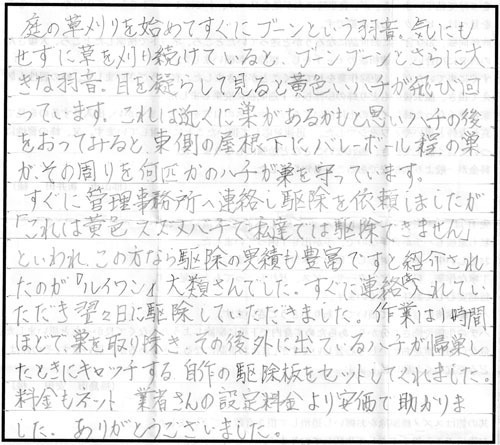 庭の草刈りを始めてすぐにブーンという羽音。気にも
せずに草を刈り続けていると、ブーンブーンとさらに大
きな羽音。目を凝らして見ると黄色いハチが飛び回
っています。これは近くに巣があるかもと思いハチの後
をおってみると、東側の屋根下にバレーボール程の巣
が、その周りを何匹かのハチが巣を守っています。
すぐに管理事務所へ連絡し駆除を依頼しましたが
「これは黄色スズメハチで私達では駆除できません」
といわれ、この方なら駆除の実績も豊富ですと紹介され
たのが『ルイワン』大類さんでした。すぐに連絡を入れてい
ただき翌々日に駆除していただきました。作業は1時間
ほどで、巣を取り除き、その後外に出ているハチが帰巣し
たときにキャッチする自作の駆除板をセットしてくれました。
料金もネット業者さんの設定料金より安価で助かりま
した。ありがとうございました。